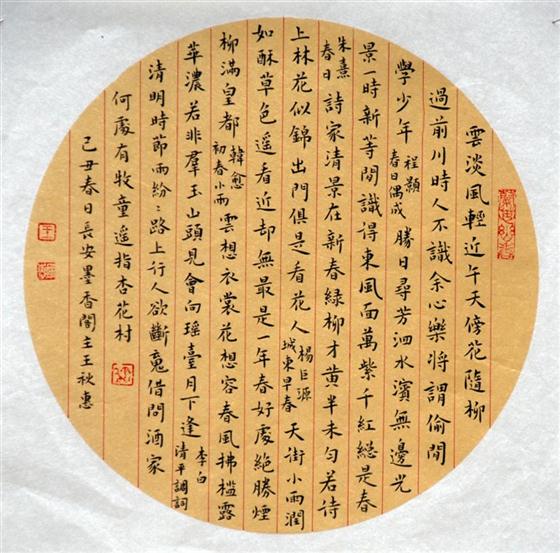 雲淡風輕近午天傍花隨柳
過前川時人不識余心樂將謂偷閒
學少年 程顥 春日偶成 勝日尋芳泗水濱無邊光
景一時新等閒識得東風面萬紫千紅總是春
朱熹 春日 詩家清景在新春綠柳才黃半未勻若待
上林花似錦出門俱是看花人 楊巨源 城東早春 天街小雨潤
如酥草色遙看近却無最是一年春好處絕勝煙
柳滿皇都 韓愈 初春小雨 雲想衣裳花想容春風拂檻露
華濃若非羣玉山頭見會向瑤臺月下逢 李白 清平調詞
清明時節雨紛〻路上行人欲斷魂借問酒家
何處有牧童遙指杏花村
己丑春日長安墨香閣主王秋惠